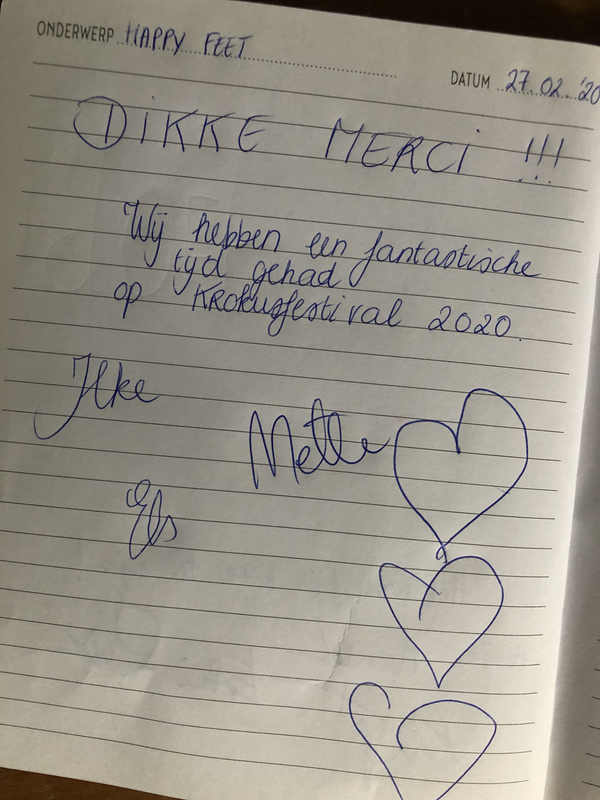 ONDERWERP HAPPY FEET
DATUM 27.02.'20
DIKKE MERCI !!!
Wij hebben een fantastische
tijd gehad
op KROKUSfestival 2020.
Ilke
Mette
Els